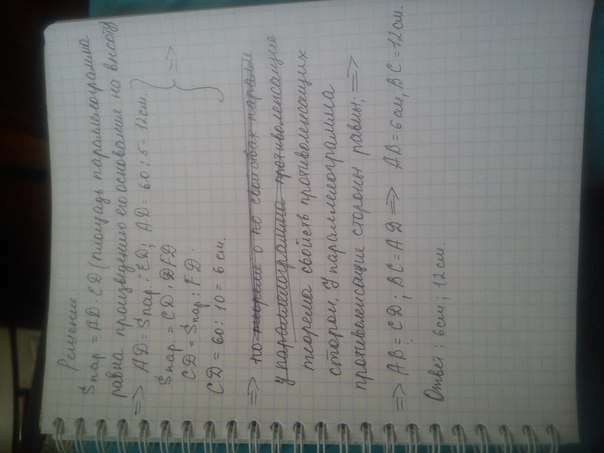 Решение
Sпар = AD·CD (площадь параллелограмма
равна произведению его основания на высоту
=> AD = Sпар : ED; AD = 60 : 5 = 12 см.
Sпар = CD · FD
CD = Sпар : FD.
CD = 60 : 10 = 6 см.
} =>
=> по теореме о по свойствах паралл
У параллелограмма противолежащие
теорема свойств противолежащих
сторон. У параллелограмма
противолежащие стороны равны. =>
=> AB = CD; BC = AD => AB = 6 см, BC = 12 см.
Ответ: 6 см; 12 см.